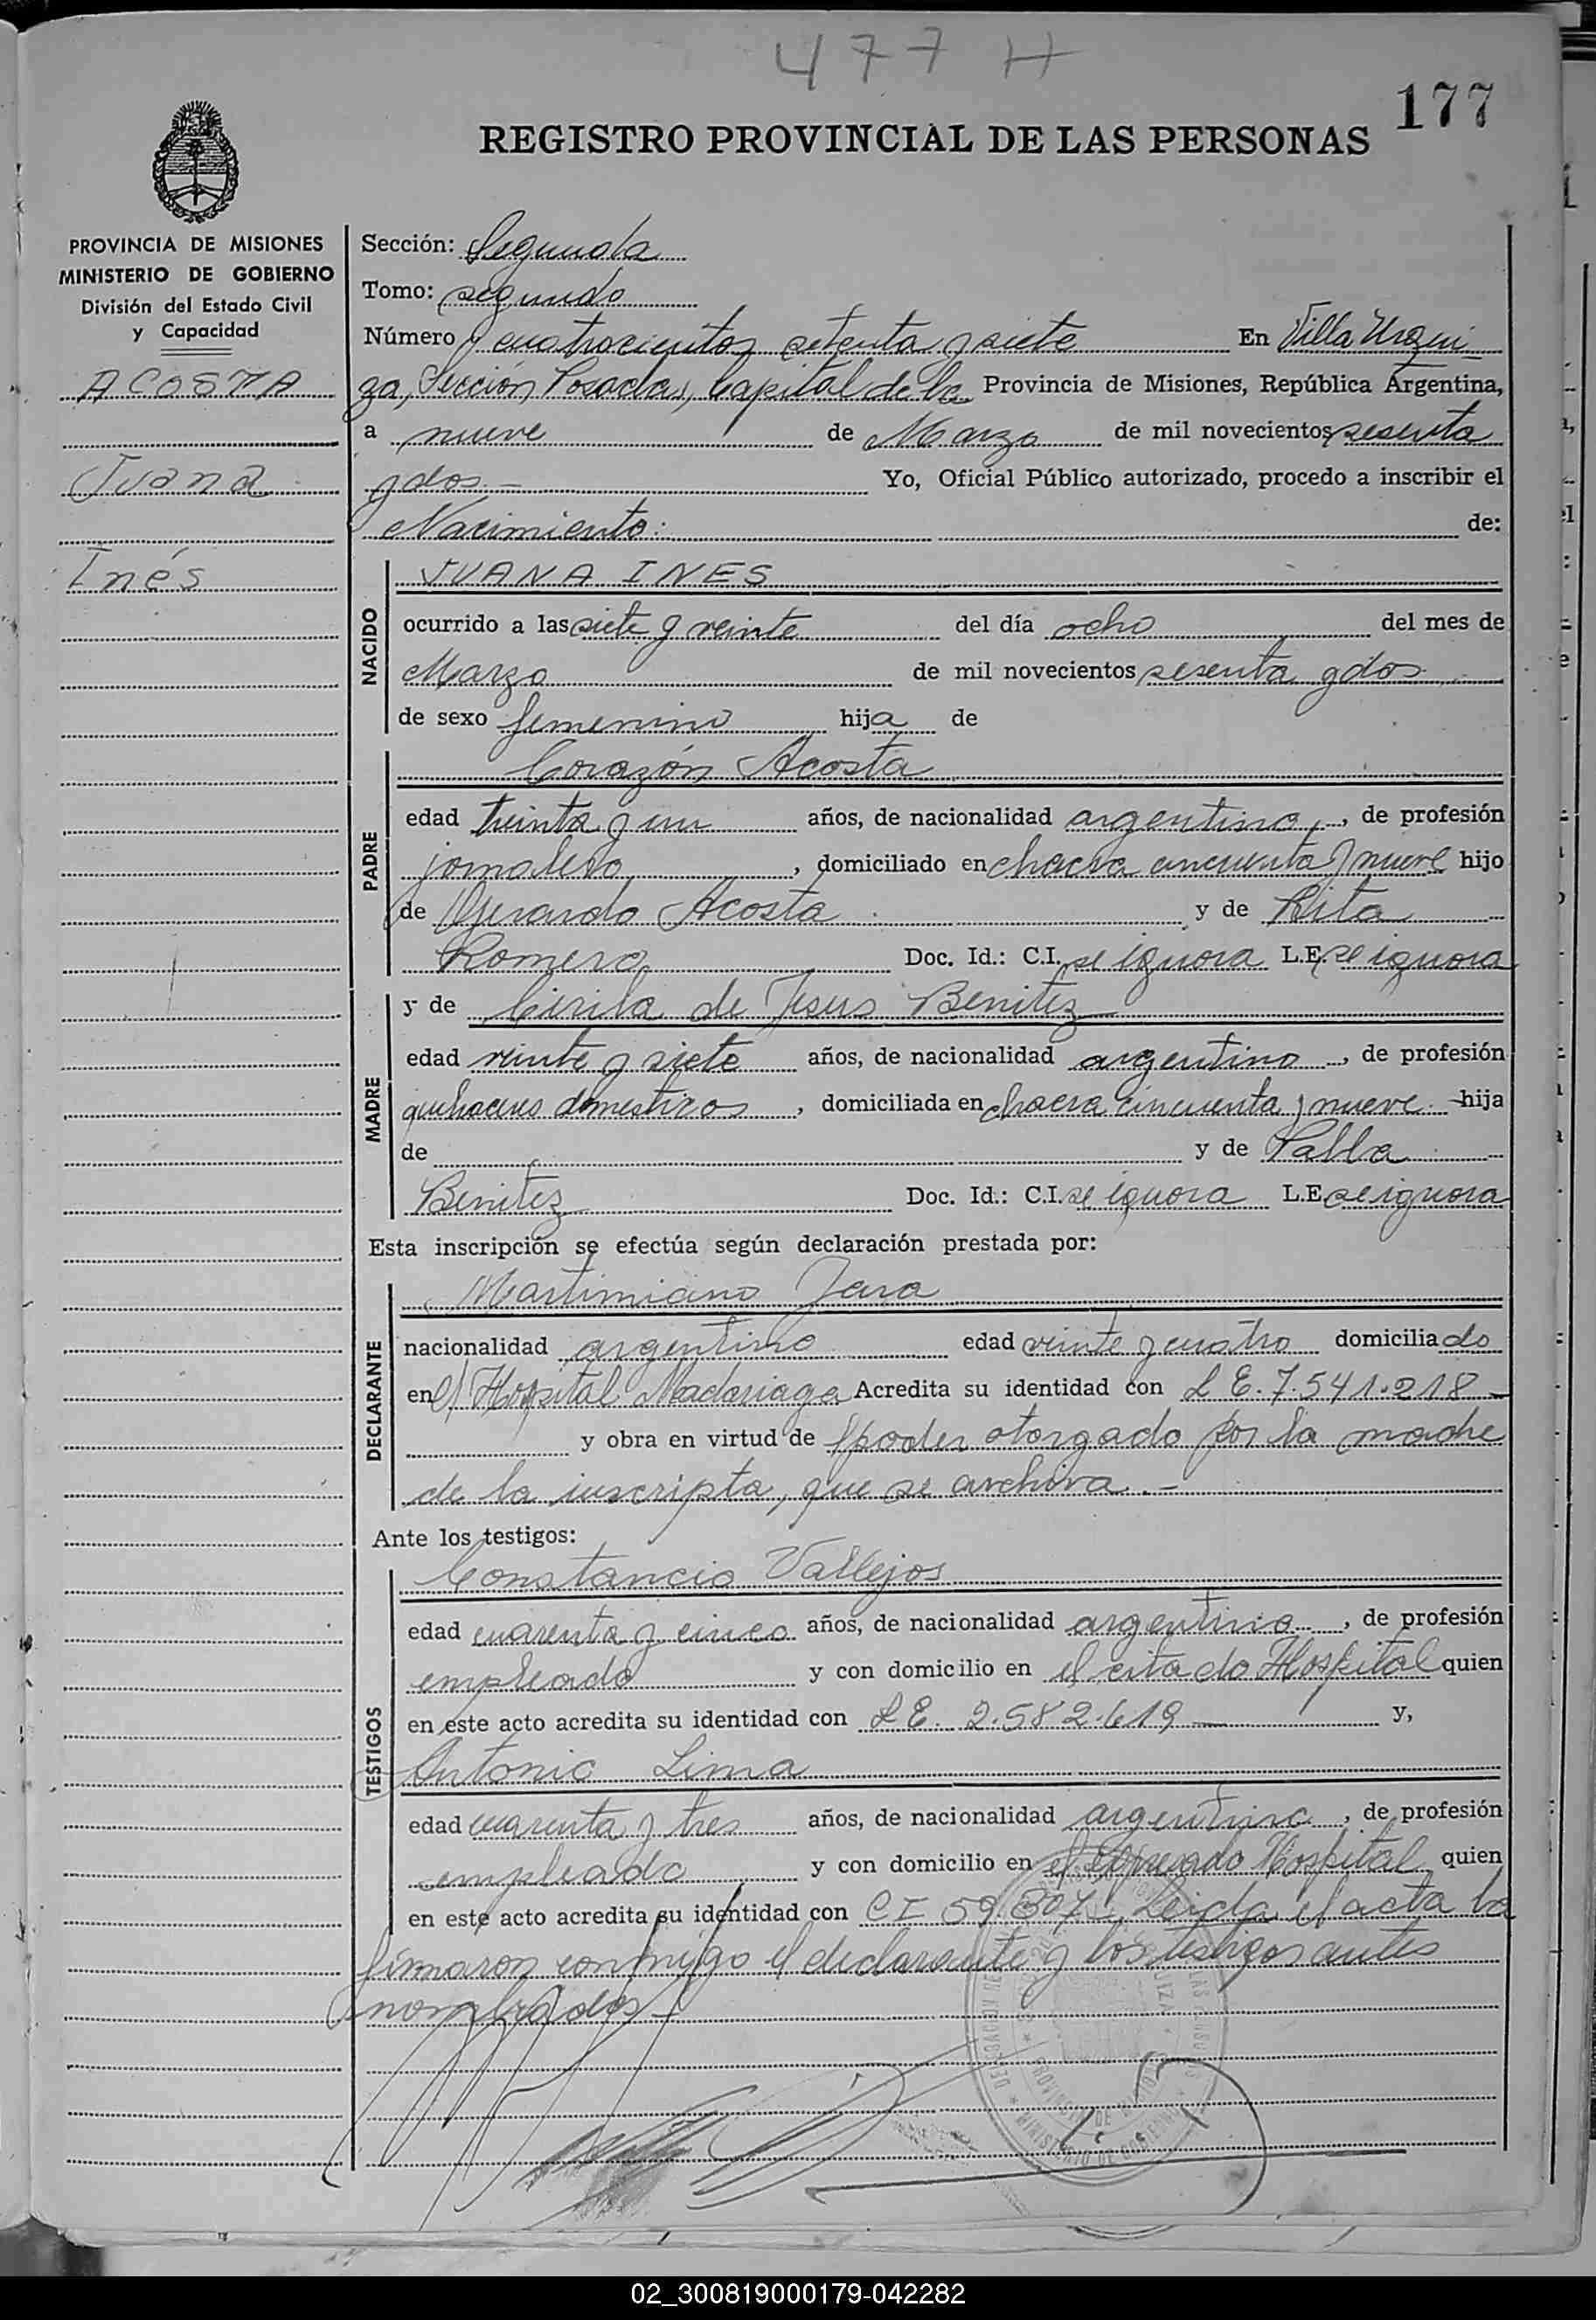 477 H
177
REGISTRO PROVINCIAL DE LAS PERSONAS
PROVINCIA DE MISIONES
MINISTERIO DE GOBIERNO
División del Estado Civil
y Capacidad
ACOSTA
Juana
Inés
Sección: Segunda
Tomo: segundo
Número cuatrocientos setenta y siete En Villa Urqui
za, Sección Posadas, Capital de la Provincia de Misiones, República Argentina,
a nueve de Marzo de mil novecientos sesenta
y dos.- Yo, Oficial Público autorizado, procedo a inscribir el
Nacimiento: de:
NACIDO
JUANA INES
ocurrido a las siete y veinte del día ocho del mes de
Marzo de mil novecientos sesenta y dos
de sexo femenino hija de
PADRE
Corazón Acosta
edad treinta y un años, de nacionalidad argentino, de profesión
jornalero, domiciliado en chacra cincuenta y nueve hijo
de Gerardo Acosta y de Rita
Romero Doc. Id.: C.I. se ignora L.E. se ignora
MADRE
y de Cirila de Jesus Benitez
edad veinte y siete años, de nacionalidad argentino, de profesión
quehaceres domesticos, domiciliada en chacra cincuenta y nueve hija
de y de Pabla
Benitez Doc. Id.: C.I. se ignora L.E. se ignora
Esta inscripción se efectúa según declaración prestada por:
DECLARANTE
Martimiano Jara
nacionalidad argentino edad veinte y cuatro domiciliado
en el Hospital Madariaga Acredita su identidad con L E. 7.541.218 -
y obra en virtud de poder otorgado por la madre
de la inscripta, que se archiva.-
Ante los testigos:
TESTIGOS
Constancio Vallejos
edad cuarenta y cinco años, de nacionalidad argentino, de profesión
empleado y con domicilio en el citado Hospital quien
en este acto acredita su identidad con L E. 2.582.619 - y,
Antonio Lima
edad cuarenta y tres años, de nacionalidad argentino, de profesión
empleado y con domicilio en el Hospital quien
en este acto acredita su identidad con C I 59.307. Leida el acta la
firmaron conmigo el declarante y los testigos antes
nombrados.-
02_300819000179-042282